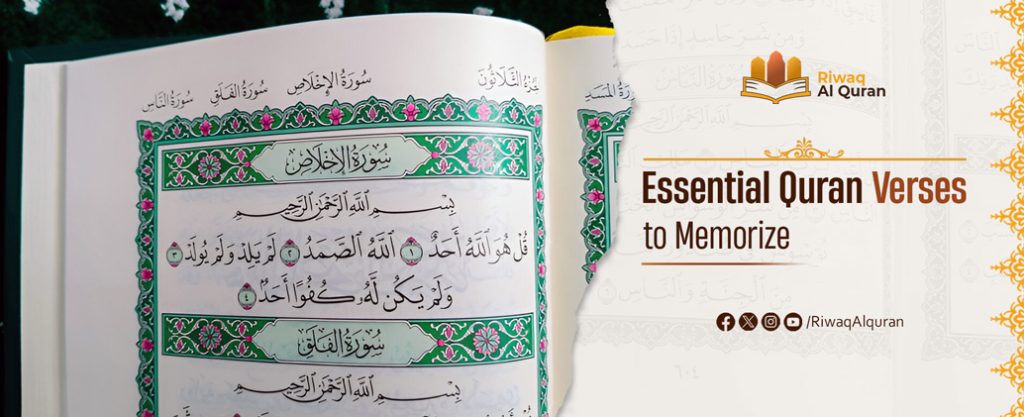 الثَّلَاثُونَ سُورَةُ الإِخْلَاصِ سُورَةُ الفَلَقِ سُورَةُ النَّاسِ
سُورَةُ الإِخْلَاصِ
بِسْمِ اللَّهِ الرَّحْمَٰنِ الرَّحِيمِ
قُلْ هُوَ اللَّهُ أَحَدٌ ١ اللَّهُ الصَّمَدُ ٢ لَمْ يَلِدْ وَلَمْ يُولَدْ ٣
وَلَمْ يَكُن لَّهُۥ كُفُوًا أَحَدٌۢ ٤
سُورَةُ الفَلَقِ
بِسْمِ اللَّهِ الرَّحْمَٰنِ الرَّحِيمِ
المَسَدِ
Riwaq
Al Quran
Essential Quran Verses
to Memorize
/RiwaqAlquran
وَمِن شَرِّ حَاسِدٍ إِذَا حَسَدَ
سُورَةُ النَّاسِ
مِنَ الْجِنَّةِ وَالنَّاسِ
٦٠٤